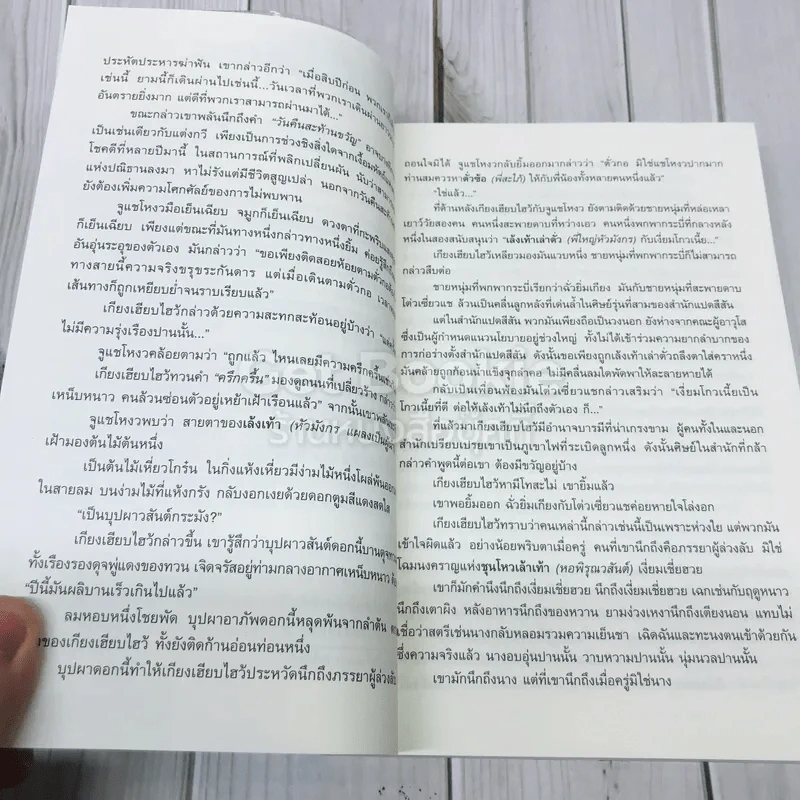 ประหัตประหารฆ่าฟัน เขากล่าวอีกว่า “เมื่อสิบปีก่อน พวกเรา
เช่นนี้ ยามนี้ก็เดินผ่านไปเช่นนี้...วันเวลาที่พวกเราเดินผ่าน
อันตรายยิ่งมาก แต่ดีที่พวกเราสามารถผ่านมาได้...”
ขณะกล่าวเขาพลันนึกถึงคำ “วันคืนสะท้านขวัญ”
เป็นเช่นเดียวกับแต่งกวี เพียงเป็นการช่วงชิงสิ่งใดจากเงื้อมหัตถ์
โชคดีที่หลายปีมานี้ ในสถานการณ์ที่พลิกเปลี่ยนผัน นับว่า
แห่งปณิธานลงมา หาไม่รังแต่มีชีวิตสูญเปล่า นอกจากวันคืน
ยังต้องเพิ่มความโศกศัลย์ของการไม่พบพาน
จูแชโหงวมือเย็นเฉียบ จมูกก็เย็นเฉียบ ดวงตาที่กะพริบ
ก็เย็นเฉียบ เพียงแต่ขณะที่มันทางหนึ่งกล่าวทางหนึ่งยิ้ม ค่อยรู้สึก
อันอุ่นระอุของตัวเอง มันกล่าวว่า “ขอเพียงติดสอยห้อยตามตั่วกอ
ทางสายนี้ความจริงขรุขระกันดาร แต่เมื่อเดินตามตั่วกอ
เส้นทางก็ถูกเหยียบย่ำจนราบเรียบแล้ว”
เกียงเฮียบไฮว้กล่าวด้วยความสะทกสะท้อนอยู่บ้างว่า
ไม่มีความรุ่งเรืองปานนั้น...”
จูแชโหงวคล้อยตามว่า “ถูกแล้ว ไหนเลยมีความครึกครื้น
เกียงเฮียบไฮว้ทวนคำ “ครึกครื้น” มองดูถนนที่เปลี่ยวร้าง
เหน็บหนาว คนล้วนซ่อนตัวอยู่เหย้าเฝ้าเรือนแล้ว” จากนั้นเขา
จูแชโหงวพบว่า สายตาของเล้งเท้า (หัวมังกร
เฝ้ามองต้นไม้ต้นหนึ่ง
เป็นต้นไม้เหี่ยวโกร๋น ในกิ่งแห้งเหี่ยวมีง่ามไม้หนึ่งโผล่พ้นออก
ในสายลม บนง่ามไม้ที่แห้งกรัง กลับงอกเงยด้วยดอกตูมสีแดงสดใส
“เป็นบุปผาวสันต์กระมัง?”
เกียงเฮียบไฮว้กล่าวขึ้น เขารู้สึกว่าบุปผาวสันต์ดอกนี้บาน
ทั้งเรืองรองดุจพู่แดงของทวน เจิดจรัสอยู่ท่ามกลางอากาศเหน็บหนาว
“ปีนี้มันผลิบานเร็วเกินไปแล้ว”
ลมหอบหนึ่งโชยพัด บุปผาอาภัพดอกนี้หลุดพ้นจากลำต้น
ของเกียงเฮียบไฮว้ ทั้งยังติดก้านอ่อนท่อนหนึ่ง
บุปผาดอกนี้ทำให้เกียงเฮียบไฮว้ประหวัดนึกถึงภรรยาผู้ล่วงลับ
ถอนใจมิได้ จูแชโหงวกลับยิ้มออกมากล่าวว่า “ตั่วกอ มิใช่แชโหงวปากมาก
ท่านสมควรหาตั่วซ้อ (พี่สะใภ้) ให้กับพี่น้องทั้งหลายคนหนึ่งแล้ว”
“ใช่แล้ว...”
ที่ด้านหลังเกียงเฮียบไฮว้กับจูแชโหงว ยังตามติดด้วยชายหนุ่มที่หล่อเหลา
เยาว์วัยสองคน คนหนึ่งสะพายดาบที่หว่างเอว คนหนึ่งพกพากระบี่ที่กลางหลัง
หนึ่งในสองสนับสนุนว่า “เล้งเท้าเล่าตั่ว (พี่ใหญ่หัวมังกร) กับเงี่ยมโกวเนี้ย...”
เกียงเฮียบไฮว้เหลียวมองมันแวบหนึ่ง ชายหนุ่มที่พกพากระบี่ก็ไม่สามารถ
กล่าวสืบต่อ
ชายหนุ่มที่พกพากระบี่เรียกว่าฉั่วยิ่มเกียง มันกับชายหนุ่มที่สะพายดาบ
โต่วเซี่ยวแช ล้วนเป็นคลื่นลูกหลังที่เด่นล้ำในศิษย์รุ่นที่สามของสำนักแปดสีสัน
แต่ในสำนักแปดสีสัน พวกมันเพียงถือเป็นวงนอก ยังห่างจากคณะผู้อาวุโส
ซึ่งเป็นผู้กำหนดแนวนโยบายอยู่ช่วงใหญ่ ทั้งไม่ได้เข้าร่วมความยากลำบากของ
การก่อร่างตั้งสำนักแปดสีสัน ดังนั้นขอเพียงถูกเล้งเท้าเล่าตั่วถลึงตาใส่คราหนึ่ง
มันคล้ายถูกก้อนน้ำแข็งจุกลำคอ ไม่มีคลื่นลมใดพัดพาให้หลุดออกมาได้
กลับเป็นเพื่อนพ้องมันโต่วเซี่ยวแชกล่าวเสริมว่า “เงี่ยมโกวเนี้ยเป็น
โกวเนี้ยที่ดี ต่อให้เล้งเท้าไม่นึกถึงตัวเอง ก็...”
ที่แล้วมาเกียงเฮียบไฮว้มีอำนาจบารมีที่น่าเกรงขาม ผู้คนทั้งในและนอก
สำนักเปรียบเปรยเขาเป็นภูเขาไฟที่ระเบิดลูกหนึ่ง ดังนั้นศิษย์ในสำนักที่กล้า
กล่าวคำพูดนี้ต่อเขา ต้องมีขวัญอยู่บ้าง
เกียงเฮียบไฮว้หามีโทสะไม่ เขายิ้มแล้ว
เขาพอยิ้มออก ฉั่วยิ่มเกียงกับโต่วเซี่ยวแชค่อยหายใจโล่งอก
เกียงเฮียบไฮว้ทราบว่าคนเหล่านี้กล่าวเช่นนี้เป็นเพราะห่วงใย แต่พวกมัน
เข้าใจผิดแล้ว อย่างน้อยพริบตาเมื่อครู่ คนที่เขานึกถึงคือภรรยาผู้ล่วงลับ มิใช่
โฉมนงคราญแห่งชุนโหวเล้าเท้า (หอพิรุณวสันต์) เงี่ยมเชี่ยฮวย
เขาก็มักคำนึงนึกถึงเงี่ยมเชี่ยฮวย นึกถึงเงี่ยมเชี่ยฮวย เฉกเช่นกับฤดูหนาว
นึกถึงเตาผิง หลังอาหารนึกถึงของหวาน ยามง่วงเหงานึกถึงเตียงนอน แทบไม่
เชื่อว่าสตรีเช่นนางกลับหลอมรวมความเย็นชา เฉิดฉันและทะนงตนเข้าด้วยกัน
ซึ่งความจริงแล้ว นางอบอุ่นปานนั้น วาบหวามปานนั้น นุ่มนวลปานนั้น
เขามักนึกถึงนาง แต่ที่เขานึกถึงเมื่อครู่มิใช่นาง